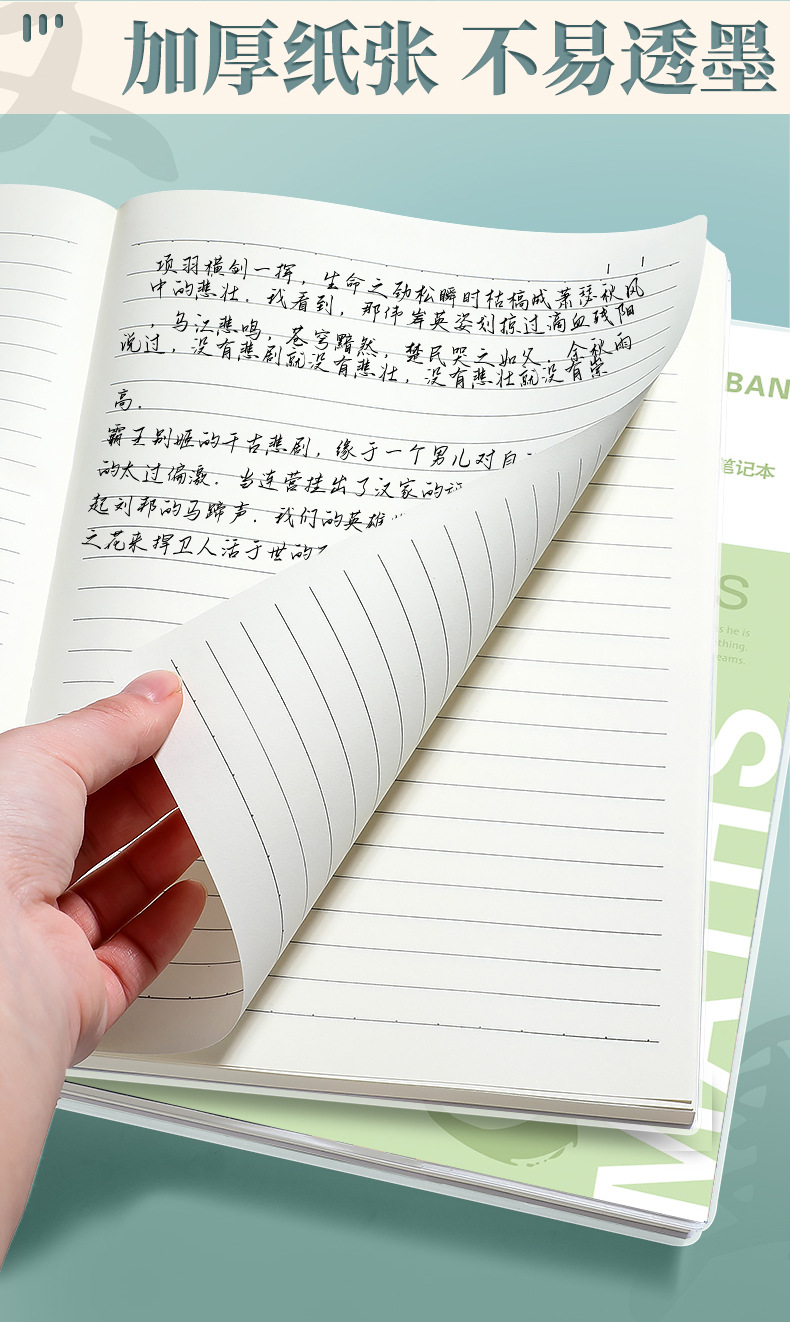 加厚纸张 不易透墨
项羽横剑一挥，生命之劲松瞬时枯槁成萧瑟秋风
中的悲壮．我看到，那伟岸英姿划掠过滴血残阳
，乌江悲鸣，苍穹黯然，楚民哭之如父．金秋雨
说过，没有悲剧就没有悲壮，没有悲壮就没有崇
高．
霸王别姬的千古悲剧，缘于一个男儿对自
的太过偏激．当连营挂出了汉家的
起刘邦的马蹄声．我们的英雄
之花来捍卫人活于世的
BAN
笔记本
S
s he is
thing.
eams.
SUTAM